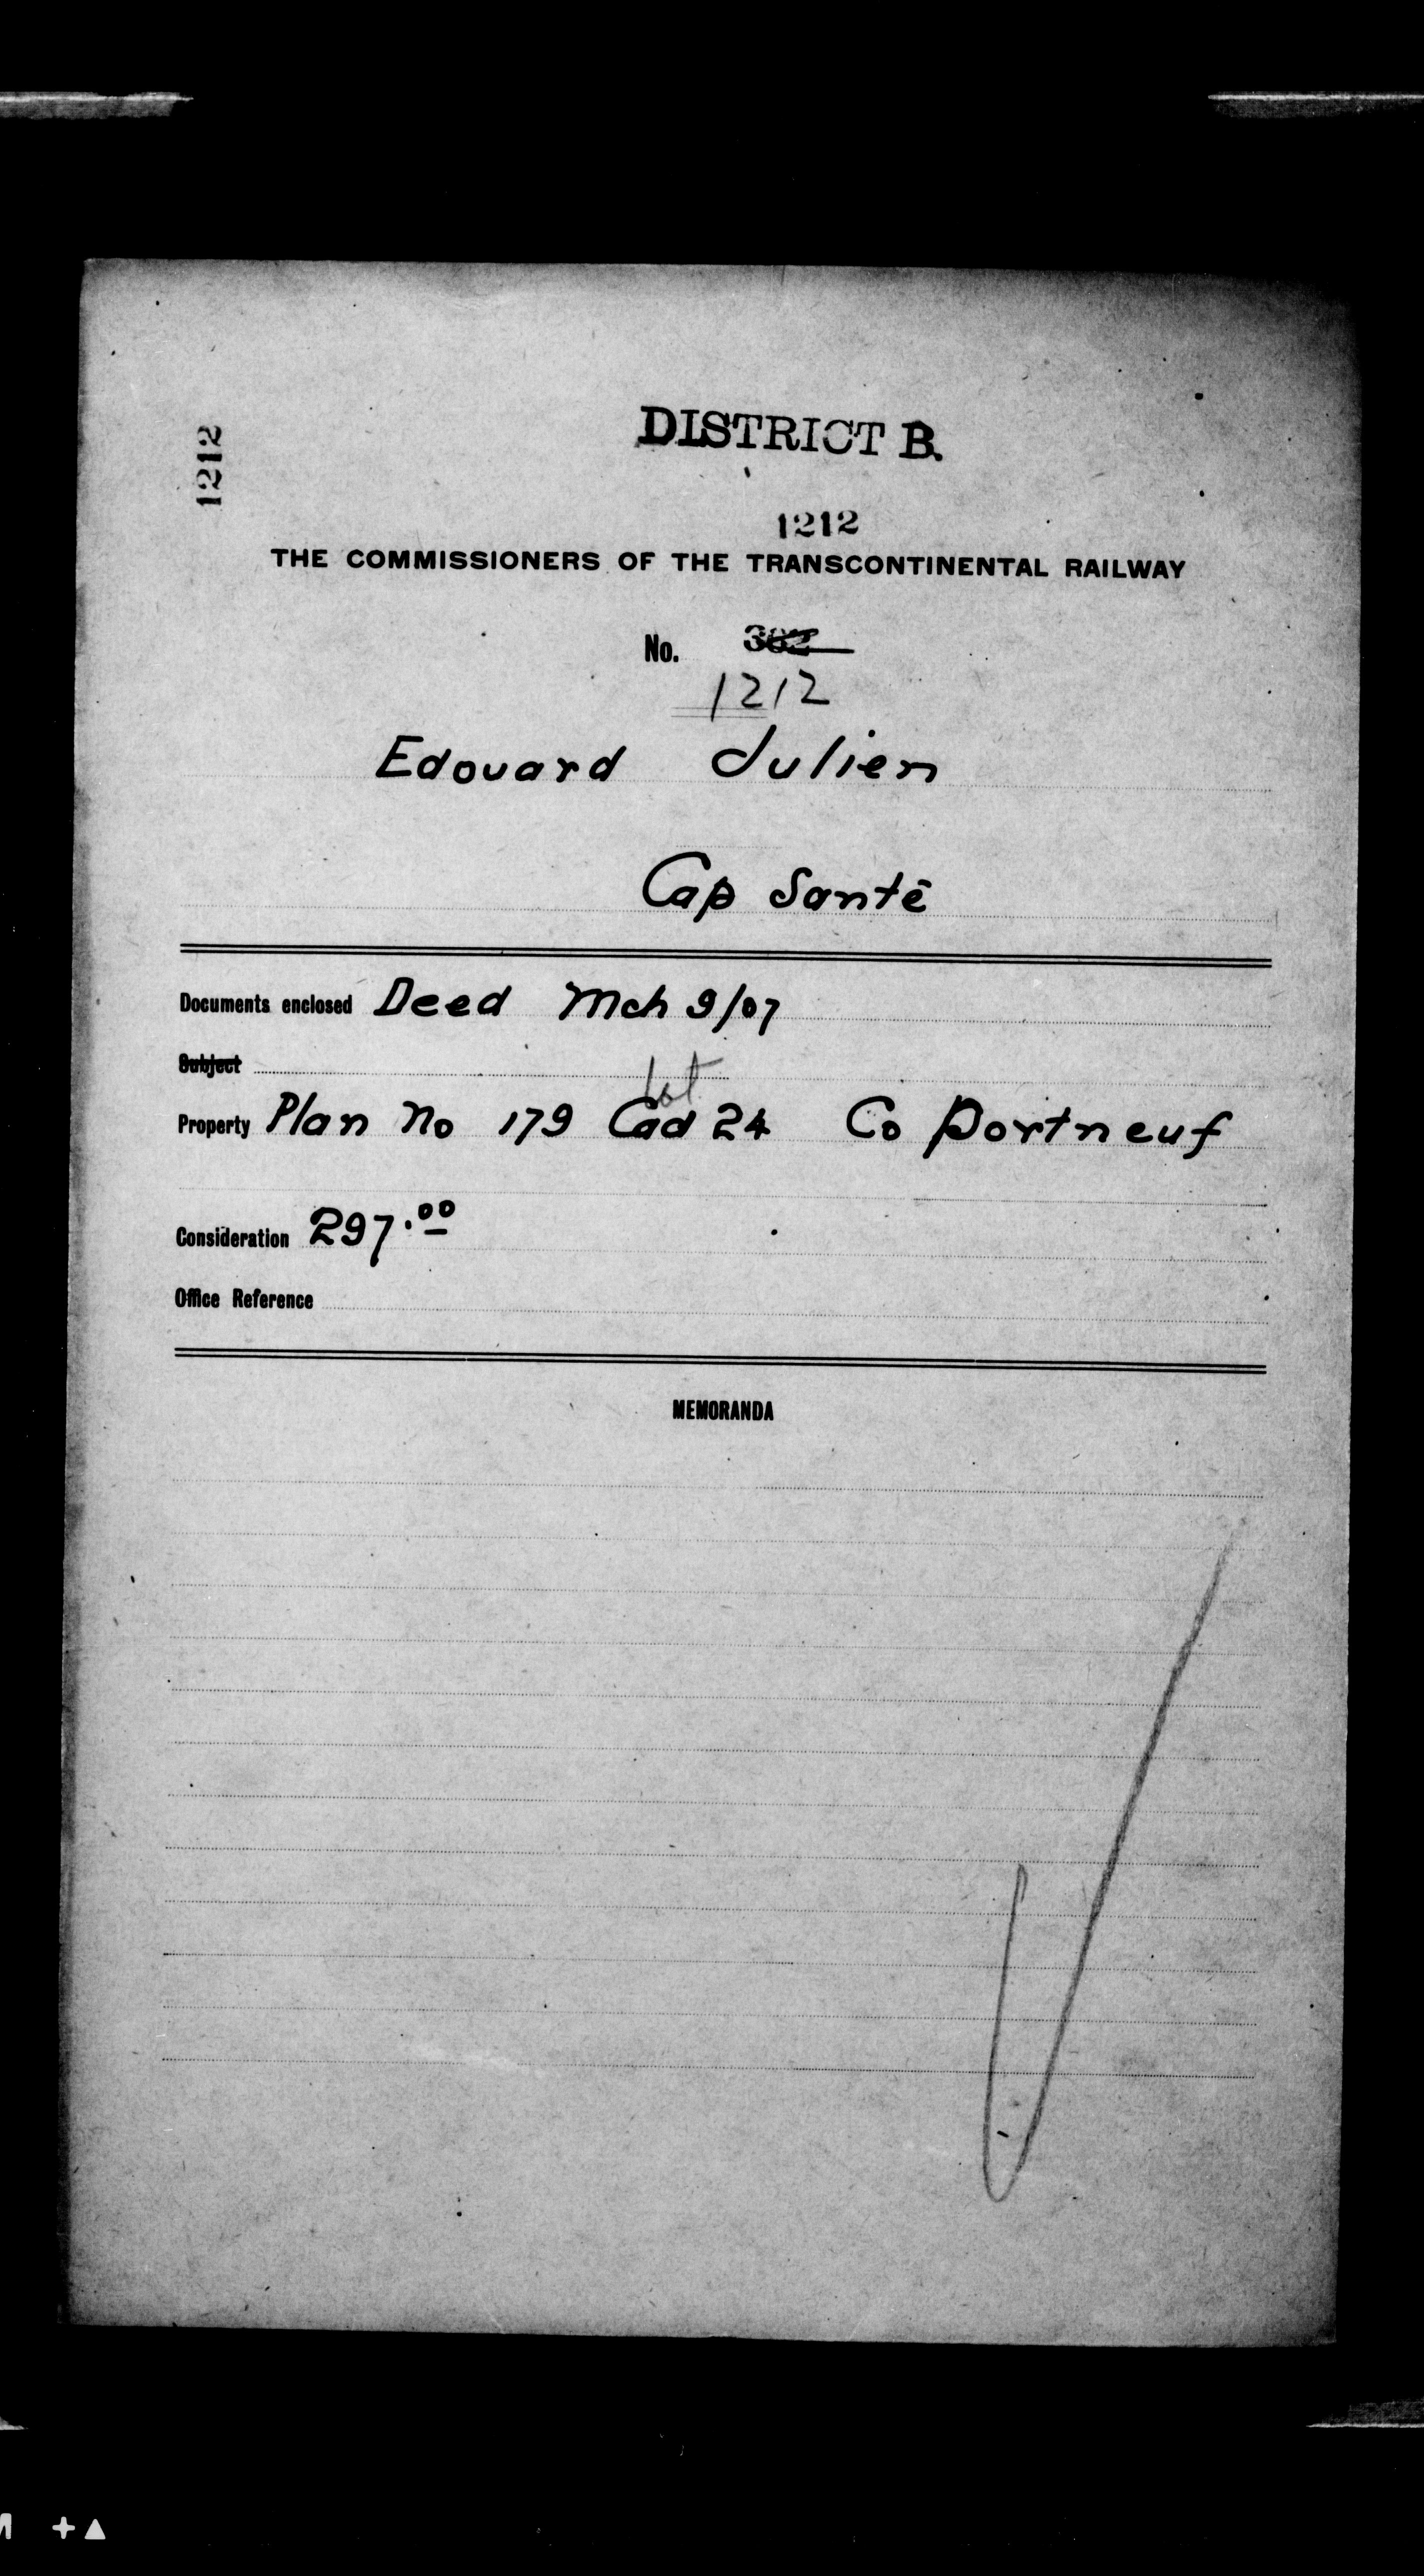 DISTRICT B.
1212
1212
THE COMMISSIONERS OF THE TRANSCONTINENTAL RAILWAY
No. 382
1212
Edouard Julien
Cap Santé
Documents enclosed Deed Mch 9/07
Subject
lot
Property Plan No 179 Cad 24 Co Portneuf
Consideration 297.00
Office Reference
MEMORANDA